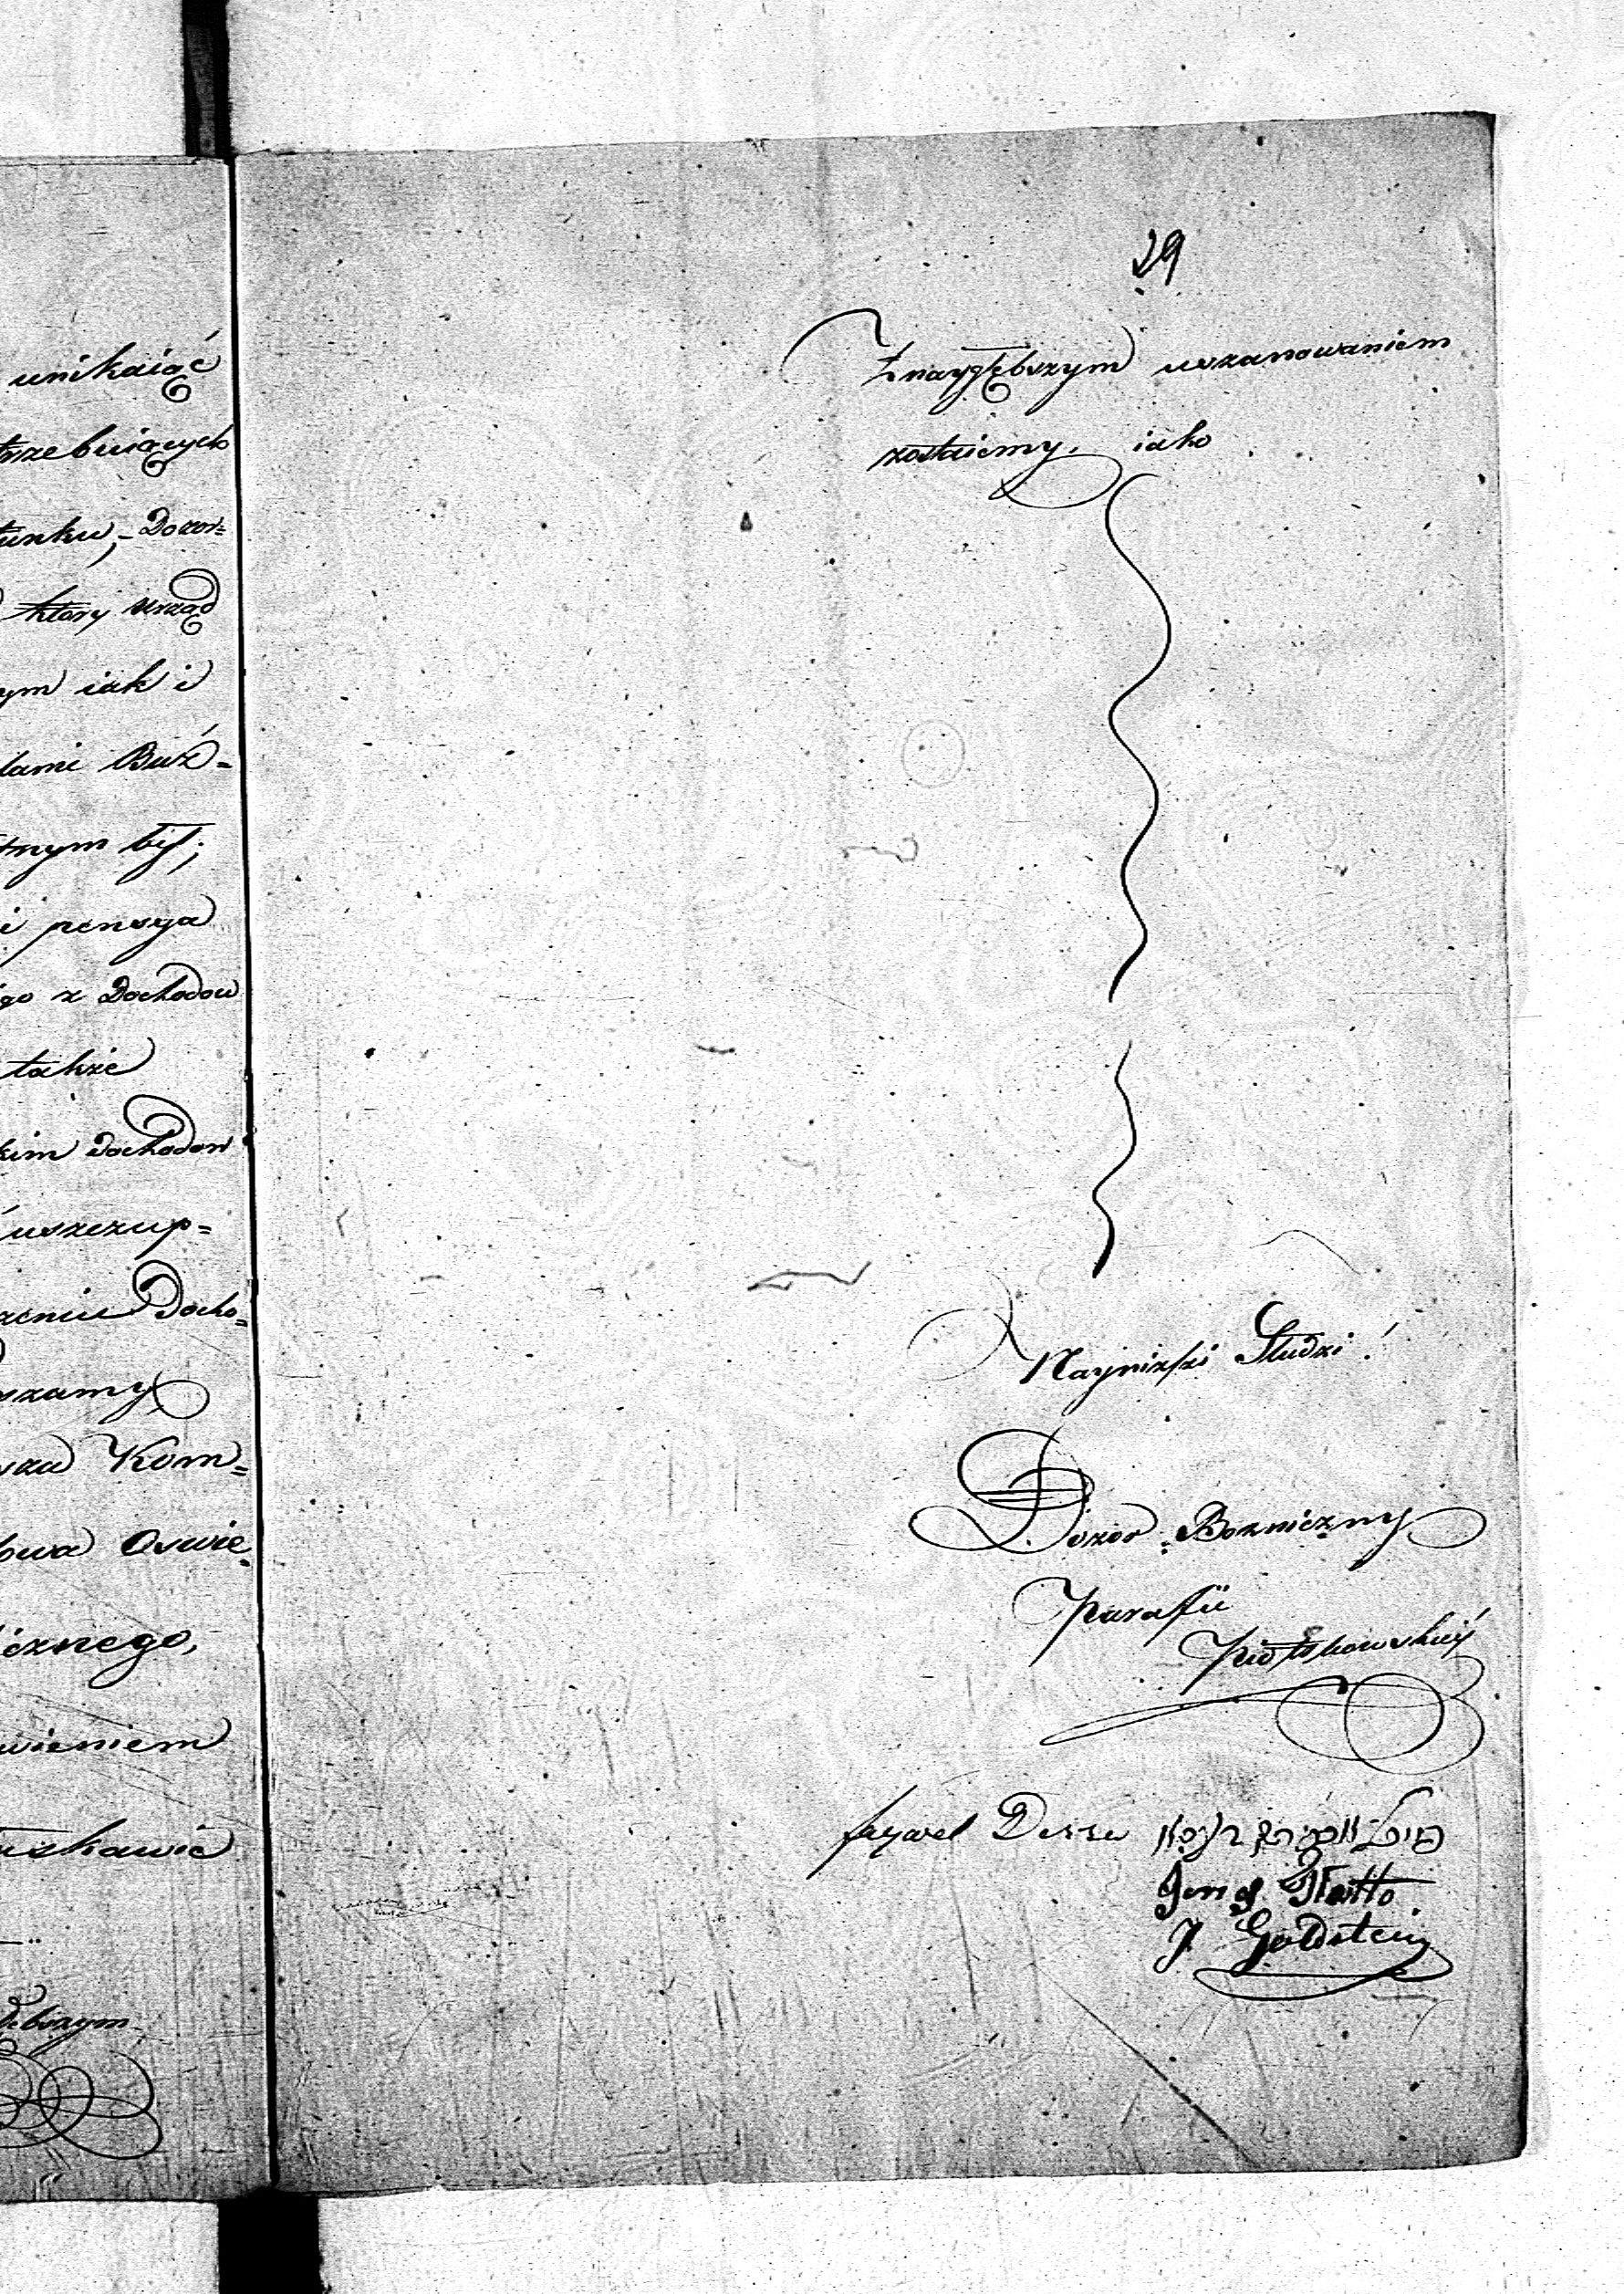 unikaiąć
trzebuiących
unku, - Dozor=
ktory urząd
ym iak i
lami Buż=
tnym był;
i pensya
go z Dochodow
także
kim dochodow
uszczup=
zeniu Docho=
szamy
sza Kom=
owa Oswie=
icznego,
wieniem
uskawie
łębszym
29
Z naygłębszym uszanowaniem
zostaiemy, iako
Nayniżsi Słudzi!
Dozor Bozniczny
Parafii
Piotrkowskiey
J. Goldstein